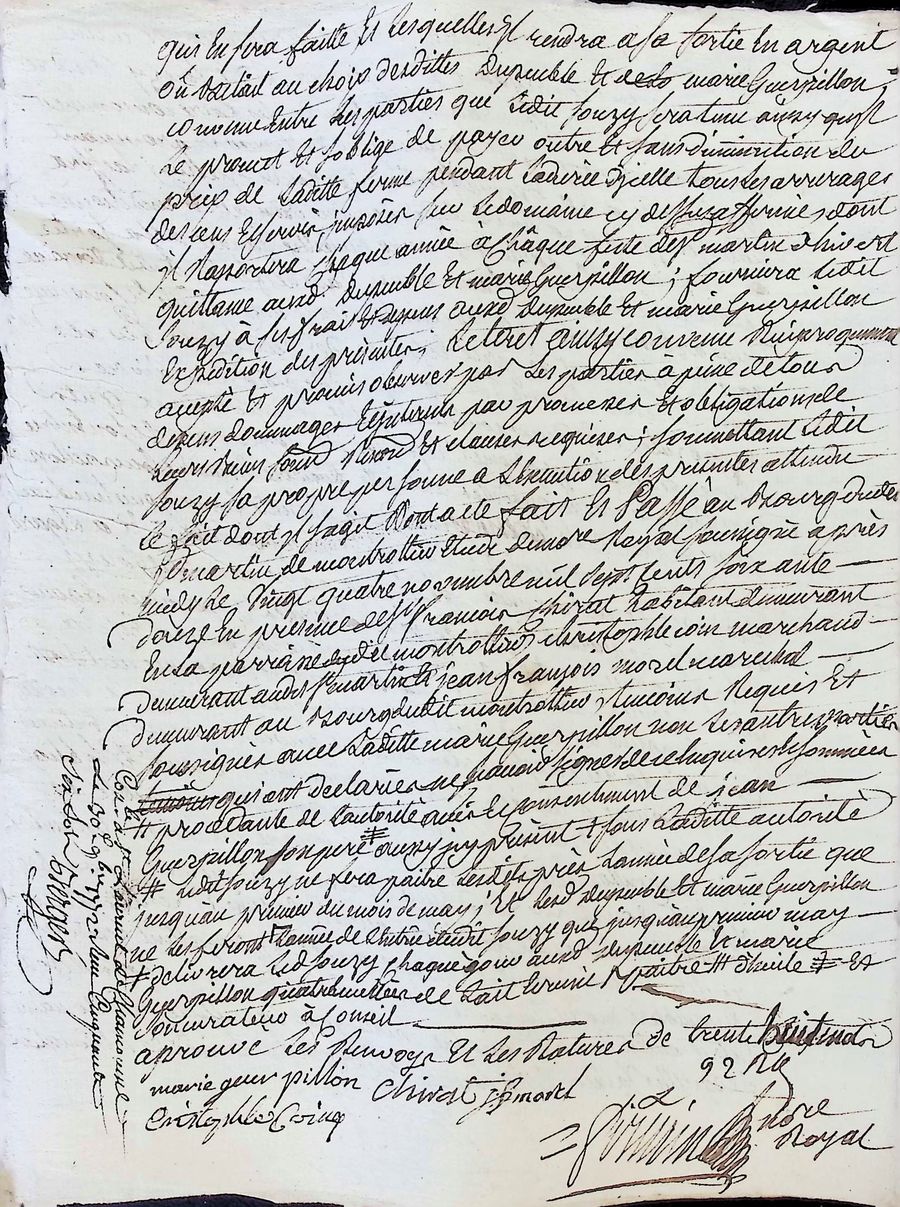 qui en sera faitte et lesquelles il rendra a sa sortie en argent
ou bettail au choix desdittes Dupeuble et marie Guerpillon,
convenu Entre les parties que ledit Souzy sera tenu ainsy quil
le promet et soblige de payer outre et sans diminution du
prix de laditte ferme pendant la durée dicelle tous les arrerages
des cens et servis imposés sur le domaine cy dessus affermé, dont
il raportera chaque année à châque feste de st martin d'hivert
quittance auxd. Dupeuble et marie Guerpillon ; fournira ledit
Souzy à ses frais et depens auxd Dupeuble et marie Guerpillon
Expédition des présentes ; Le tout ainsy convenu Réciproquement
accepté et promis observer par les parties à peine de tous
depens dommages Et interets par promesses et obligations de
leurs biens soumis Renon et clauses requises ; soumettant ledit
Souzy sa propre personne a l'execution des presentes attendu
le fait dont il sagit Dont acte fait et Passé au Bourg dudit
st martin de montrottier etude du nore Royal soussigné après
midy le vingt quatre novembre mil sept cents soixante
douze En presence de sr françois Chirat habitant demeurant
en sa parroisse dudit montrottier, christophle coin marchand
demeurant audit st martin et jean françois morel marechal
demeurant au Bourg dudit montrottier, temoins Requis Et
soussignés avec laditte marie Guerpillon non les autres parties
qui ont declaré ne sçavoir signer de ce enquis et sommées
# procedante de l'autorité avis et consentement de jean
Guerpillon son pere aussy icy présent # sous laditte autorité
# ledit Souzy ne fera paitre les dits près l'année de sa sortie que
jusqu'au premier du mois de may ; et lesd Dupeuble et marie Guerpillon
ne les feront l'année de l'entrée dudit Souzy que jusqu'au premier may
# delivrera led Souzy chaque jour auxd Dupeuble et marie
Guerpillon quatre de lait # paitre ## d'huile # Et
procurateur à Conseil
aprouvé les Renvoys Et les Ratures de trente huit mots
92 Re
marie guerpillon Chirat jf morel
Cristophle Coing
nore
Royal
Con. à st Laurent de Chamousset
Le 30 9bre 1772